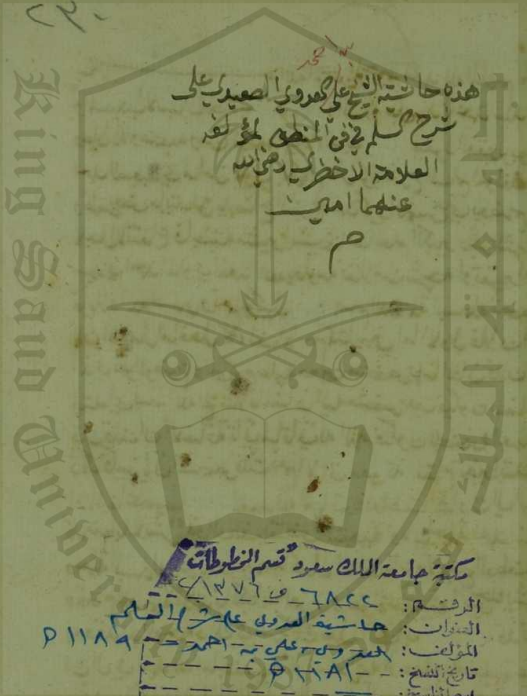 ٢٣٠
هذه حاشية الشيخ علي العدوي الصعيدي على
شرح السلم في فن المنطق لمؤلفه
العلامة الاخضري رضي الله
عنهما امين
م
King Saud University
مكتبة جامعة الملك سعود قسم المخطوطات
الرقم: ٦٨٢٢ ف ١٣٧٦/٢
العنوان: حاشية العدوي على شرح السلم
المؤلف: العدوي، علي بن احمد - ١١٨٩ ه
تاريخ النسخ: